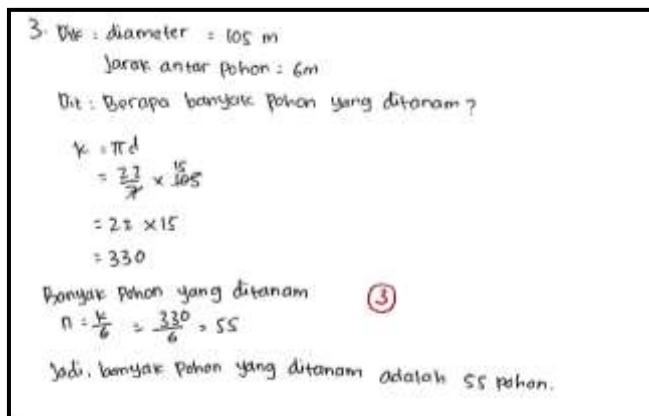 3. Dik : diameter = 105 m
Jarak antar pohon = 6m
Dit : Berapa banyak pohon yang ditanam?
k = πd
= 22/7 × 105 15
= 22 × 15
= 330
Banyak pohon yang ditanam
n = k/6 = 330/6 = 55
3
Jadi, banyak pohon yang ditanam adalah 55 pohon.